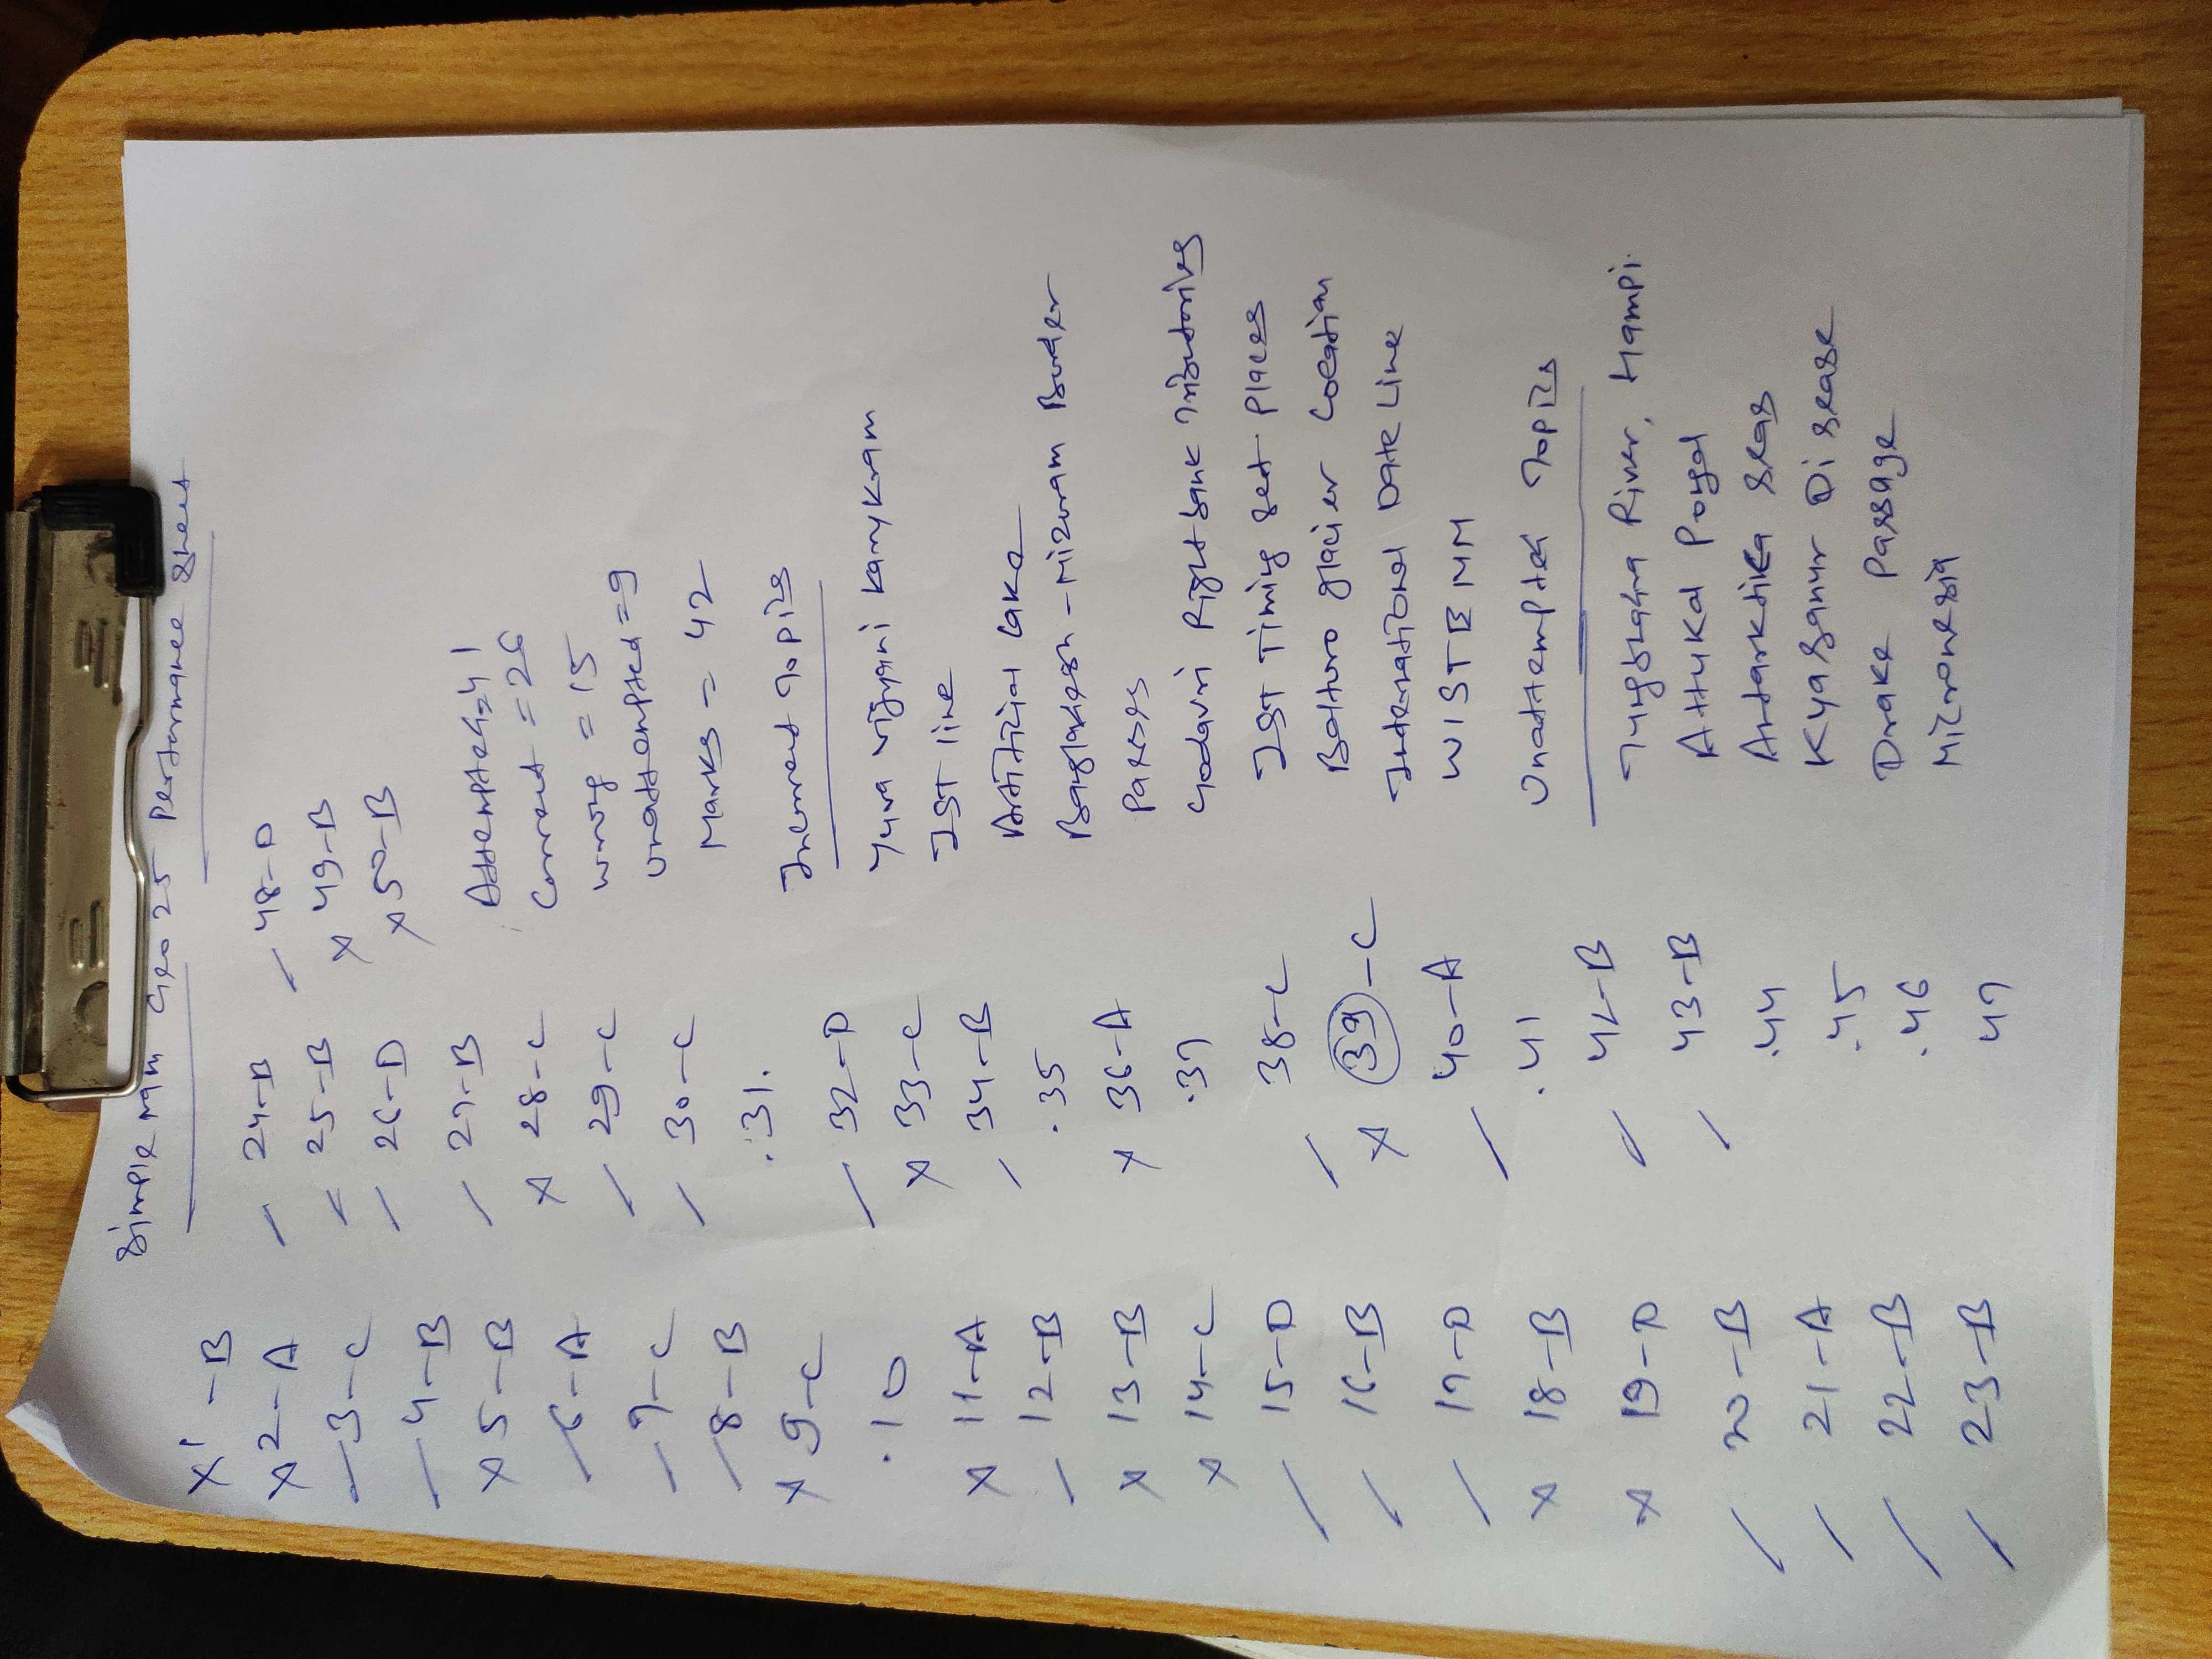 Simple Man Geo 25 Pertormance Sheet
× 1 - B
× 2 - A
/ 3 - C
/ 4 - B
× 5 - B
/ 6 - A
/ 7 - C
/ 8 - B
× 9 - C
. 10
× 11 - A
/ 12 - B
× 13 - B
× 14 - C
/ 15 - D
/ 16 - B
/ 17 - D
× 18 - B
× 19 - D
/ 20 - B
/ 21 - A
/ 22 - B
/ 23 - B
/ 24 - B
/ 25 - B
/ 26 - D
/ 27 - B
× 28 - C
/ 29 - C
/ 30 - C
. 31.
/ 32 - D
× 33 - C
/ 34 - B
. 35
× 36 - A
. 37
/ 38 - C
× 39 - C
/ 40 - A
. 41
/ 42 - B
/ 43 - B
. 44
. 45
. 46
47
/ 48 - D
× 49 - B
× 50 - B
Attempted = 41
Correct = 26
wrong = 15
Unattempted = 9
Marks = 42
Incorrect Topics
Yuva Vigyani Karnykram
IST line
Artificial Lake
Bangladesh - Mizoram Border
Passes
Godavri Right bank Tributories
IST Timing set Places
Baltoro glacier Location
International Date Line
WISTEMM
Unattempted Topics
Tungbhadra River, Hampi.
Attukal Pongal
Antarktika seas
Kyasanur Disease
Drake Passage
Micronesia